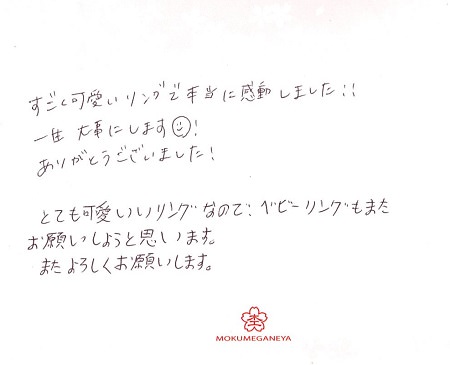 すごく可愛いリングで本当に感動しました!!
一生大事にします☺!
ありがとうございました!
とても可愛いいリングなので、ベビーリングもまた
お願いしようと思います。
またよろしくお願いします。
杢
MOKUMEGANEYA